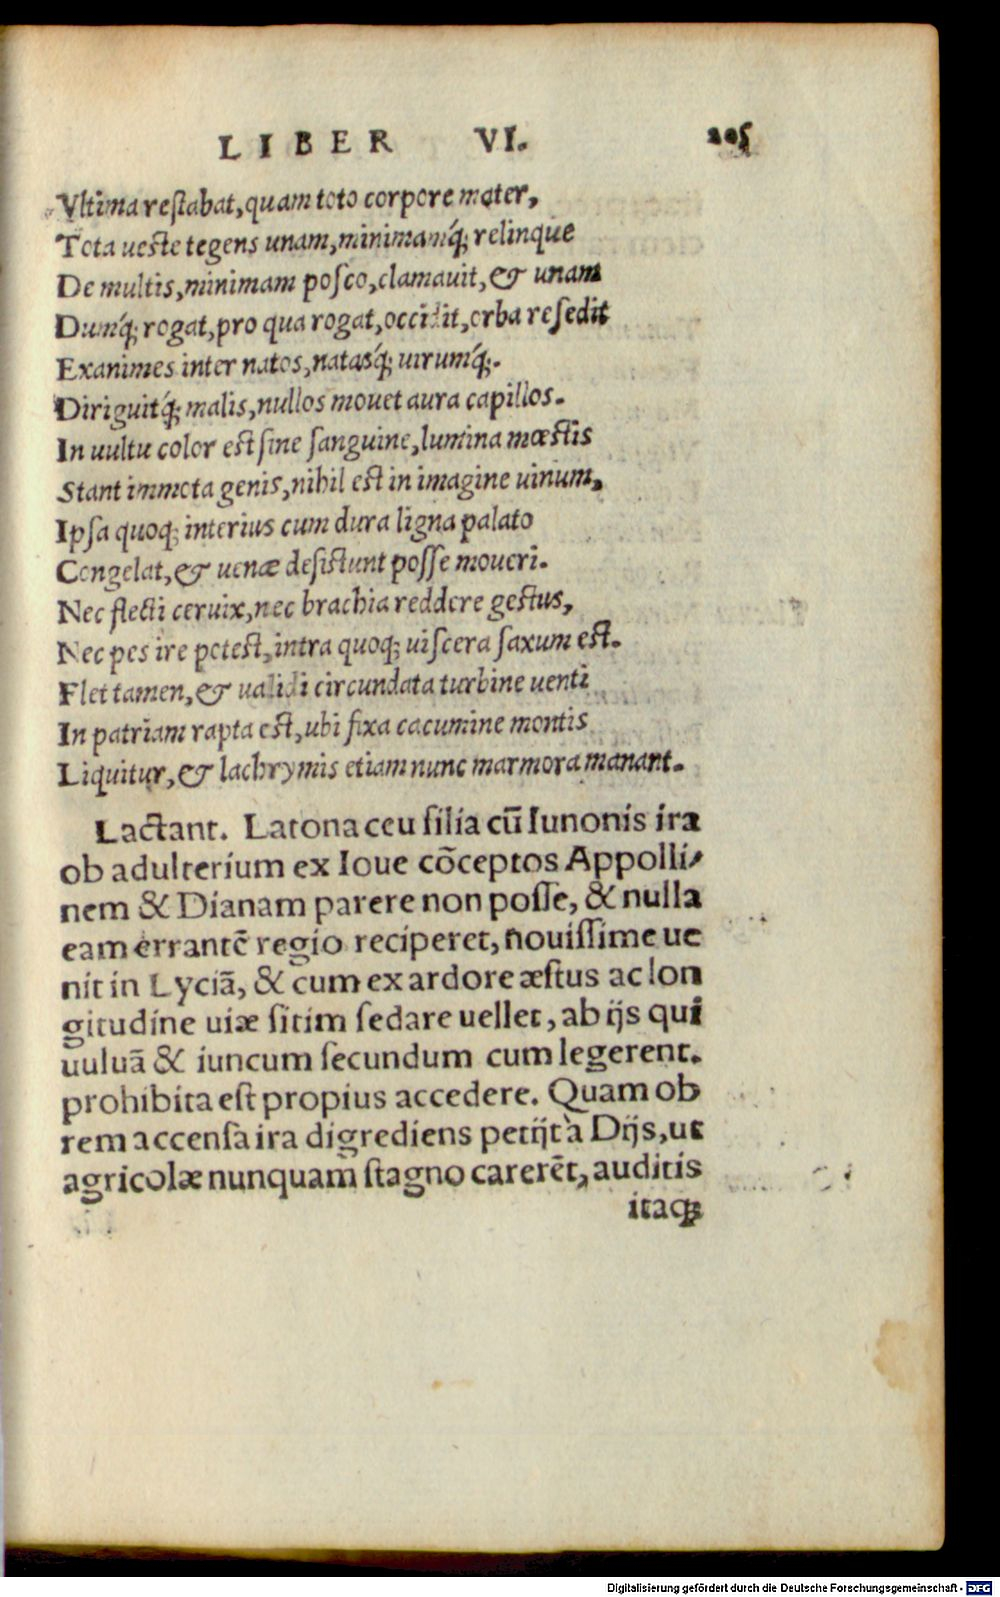 LIBER VI. 205
Vltima restabat, quam toto corpore mater,
Tota ueste tegens unam, minimamq́; relinque
De multis, minimam posco, clamauit, & unam
Dumq́; rogat, pro qua rogat, occidit, orba resedit
Exanimes inter natos, natasq́; uirumq́;.
Diriguitq́; malis, nullos mouet aura capillos.
In uultu color est sine sanguine, lumina mœstis
Stant immota genis, nihil est in imagine uinum,
Ipsa quoq; interius cum dura ligna palato
Congelat, & uenæ desistunt posse moueri.
Nec flecti ceruix, nec brachia reddere gestus,
Nec pes ire potest, intra quoq; uiscera saxum est.
Flet tamen, & ualidi circundata turbine uenti
In patriam rapta est, ubi fixa cacumine montis
Liquitur, & lachrymis etiam nunc marmora manant.
Lactant. Latona ceu filia cū Iunonis ira
ob adulterium ex Ioue cōceptos Appolli-
nem & Dianam parere non posse, & nulla
eam errantē regio reciperet, nouissime ue
nit in Lyciā, & cum ex ardore æstus ac lon
gitudine uiæ sitim sedare uellet, ab ijs qui
uuluā & iuncum secundum cum legerent.
prohibita est propius accedere. Quam ob
rem accensa ira digrediens petijt à Dijs, ut
agricolæ nunquam stagno carerēt, auditis
itaq;
Digitalisierung gefördert durch die Deutsche Forschungsgemeinschaft - DFG